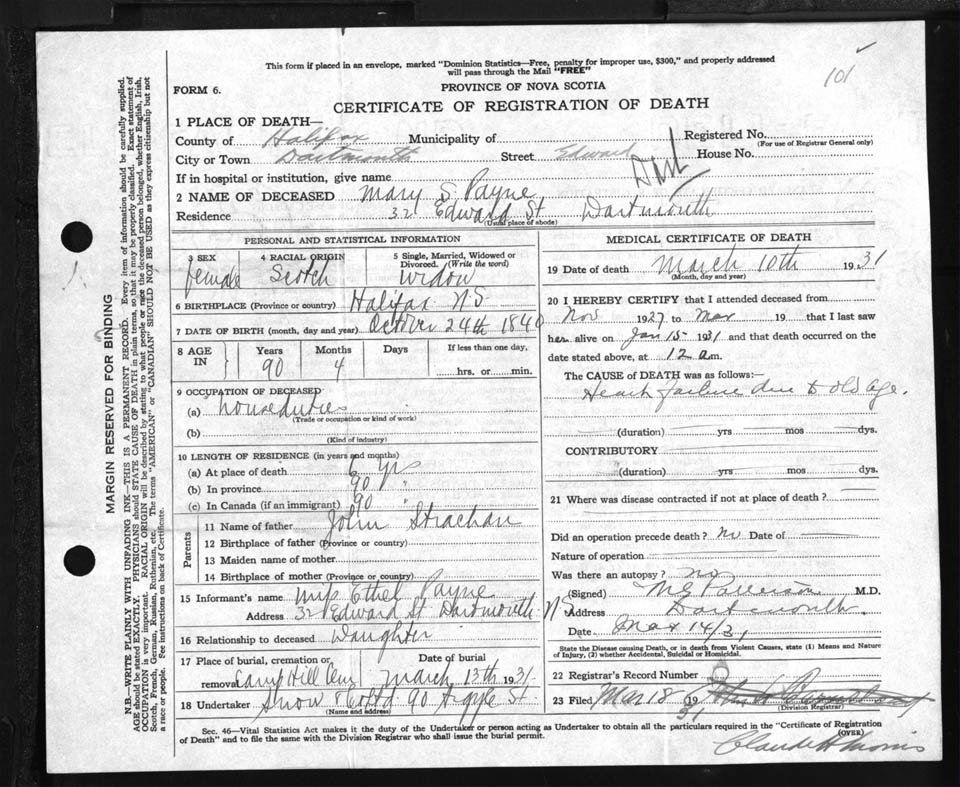 101
This form if placed in an envelope, marked "Dominion Statistics—Free, penalty for improper use, $300," and properly addressed
will pass through the Mail "FREE"
FORM 6.
PROVINCE OF NOVA SCOTIA
CERTIFICATE OF REGISTRATION OF DEATH
1 PLACE OF DEATH—
County of Halifax Municipality of Registered No.
(For use of Registrar General only)
City or Town Dartmouth Street Edward House No.
Dart
If in hospital or institution, give name
2 NAME OF DECEASED Mary S Payne
Residence 32 Edward St Dartmouth
(Usual place of abode)
PERSONAL AND STATISTICAL INFORMATION
3 SEX 4 RACIAL ORIGIN 5 Single, Married, Widowed or
Divorced. (Write the word)
female Scotch Widow
6 BIRTHPLACE (Province or country) Halifax N.S
7 DATE OF BIRTH (month, day and year) October 24th 1840
8 AGE IN Years Months Days If less than one day.
90 4 hrs. or min.
9 OCCUPATION OF DECEASED
(a) houseduties
(Trade or occupation or kind of work)
(b)
(Kind of industry)
10 LENGTH OF RESIDENCE (in years and months)
(a) At place of death 6 yrs
(b) In province 90 "
(c) In Canada (if an immigrant) 90 "
Parents
11 Name of father John Strachan
12 Birthplace of father (Province or country)
13 Maiden name of mother
14 Birthplace of mother (Province or country)
15 Informant's name Miss Ethel Payne
Address 32 Edward St Dartmouth N.S
16 Relationship to deceased Daughter
17 Place of burial, cremation or Date of burial
removal Camp Hill Cem March 13th 1931
18 Undertaker Snow & Co Ltd 90 Argyle St
(Name and address)
MEDICAL CERTIFICATE OF DEATH
19 Date of death March 10th 1931
(Month, day and year)
20 I HEREBY CERTIFY that I attended deceased from
Nov 1927 to Mar 19 that I last saw
her alive on Jan 15 1931 and that death occurred on the
date stated above, at 12 a.m.
The CAUSE of DEATH was as follows:—
Heart failure due to old age.
(duration) yrs mos dys.
CONTRIBUTORY
(duration) yrs mos dys.
21 Where was disease contracted if not at place of death?
Did an operation precede death? no Date of
Nature of operation
Was there an autopsy? no
(Signed) M.D.
Address Dartmouth
Date Mar 14/31
State the Disease causing Death, or in death from Violent Causes, state (1) Means and Nature
of Injury, (2) whether Accidental, Suicidal or Homicidal.
22 Registrar's Record Number
23 Filed Mar 18 1931
(Division Registrar)
(OVER)
Claude H Morris
Sec. 46—Vital Statistics Act makes it the duty of the Undertaker or person acting as Undertaker to obtain all the particulars required in the "Certificate of Registration
of Death" and to file the same with the Division Registrar who shall issue the burial permit.
MARGIN RESERVED FOR BINDING
N.B.—WRITE PLAINLY WITH UNFADING INK—THIS IS A PERMANENT RECORD. Every item of information should be carefully supplied.
AGE should be stated EXACTLY. PHYSICIANS should STATE CAUSE OF DEATH in plain terms, so that it may be properly classified. Exact statement of
OCCUPATION is very important. RACIAL ORIGIN will be described by stating to what people or race the deceased person belonged, whether English, Irish,
Scotch, French, German, Russian, Ruthenian, etc. The terms "AMERICAN" or "CANADIAN" SHOULD NOT BE USED as they express citizenship but not
a race or people. See instructions on back of Certificate.